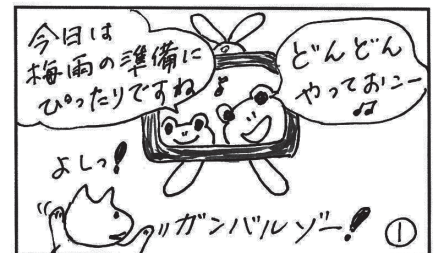 今日は
梅雨の準備に
ぴったりですね♪
どんどん
やっておこー♫
よしっ!
ガンバルゾー!
①